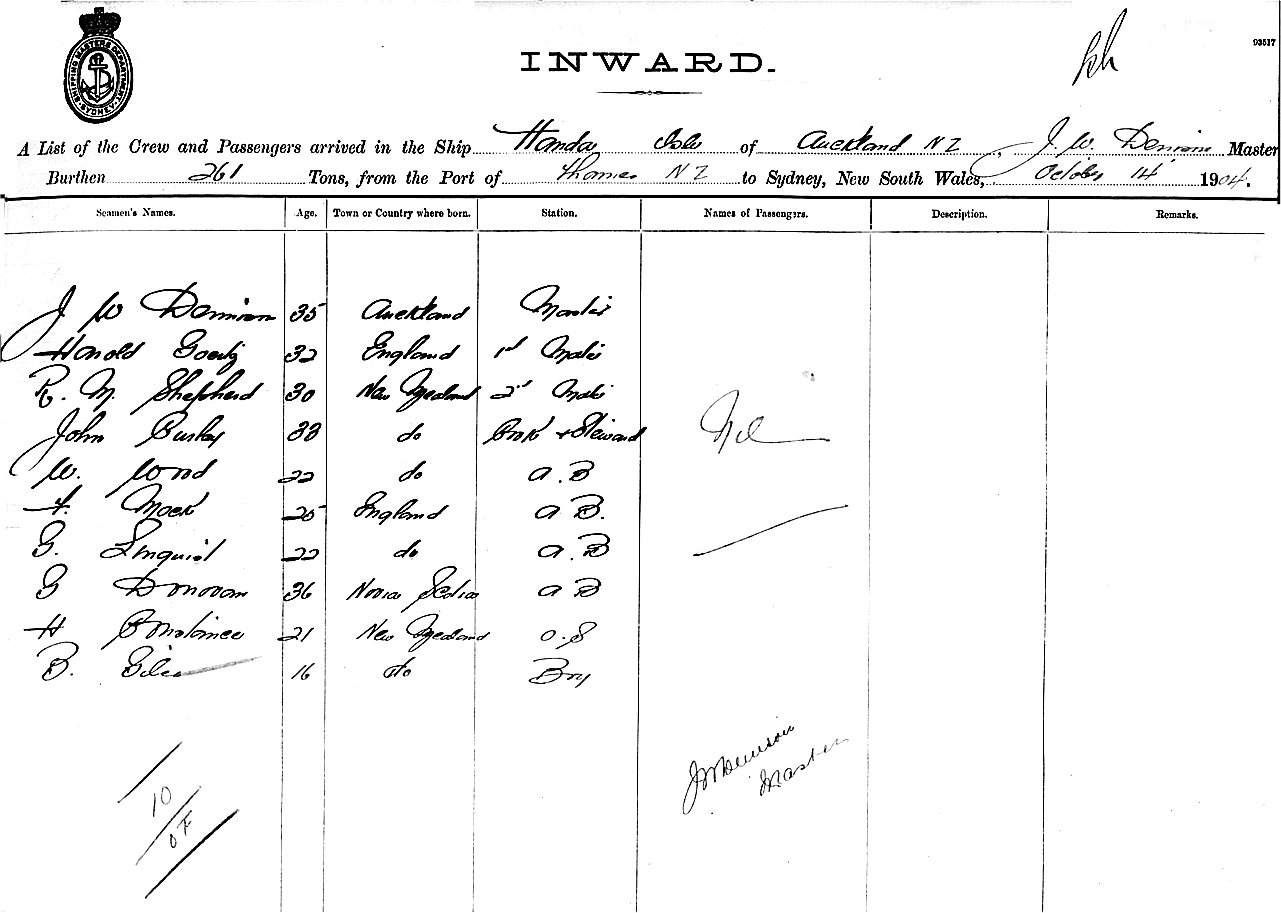 SHIPPING MASTERS DEPARTMENT SYDNEY
93517
INWARD.
A List of the Crew and Passengers arrived in the Ship Handa Isle of Auckland NZ, J. W. Dennison Master
Burthen 261 Tons, from the Port of Thames NZ to Sydney, New South Wales, October 14 1904.
Seamen's Names. Age. Town or Country where born. Station. Names of Passengers. Description. Remarks.
J W Dennison 35 Auckland Master
Harold 32 England 1st Mate
R. M. Shepherd 30 New Zealand 2nd Mate
John 33 do Cook + Steward
Nil
W. Wood 22 do A.B
25 England A B.
G. Linquist 22 do A.B
G Donovan 36 Nova Scotia A B
H 21 New Zealand O.S
B. Giles 16 do Boy
JWDennison
Master
10
OF